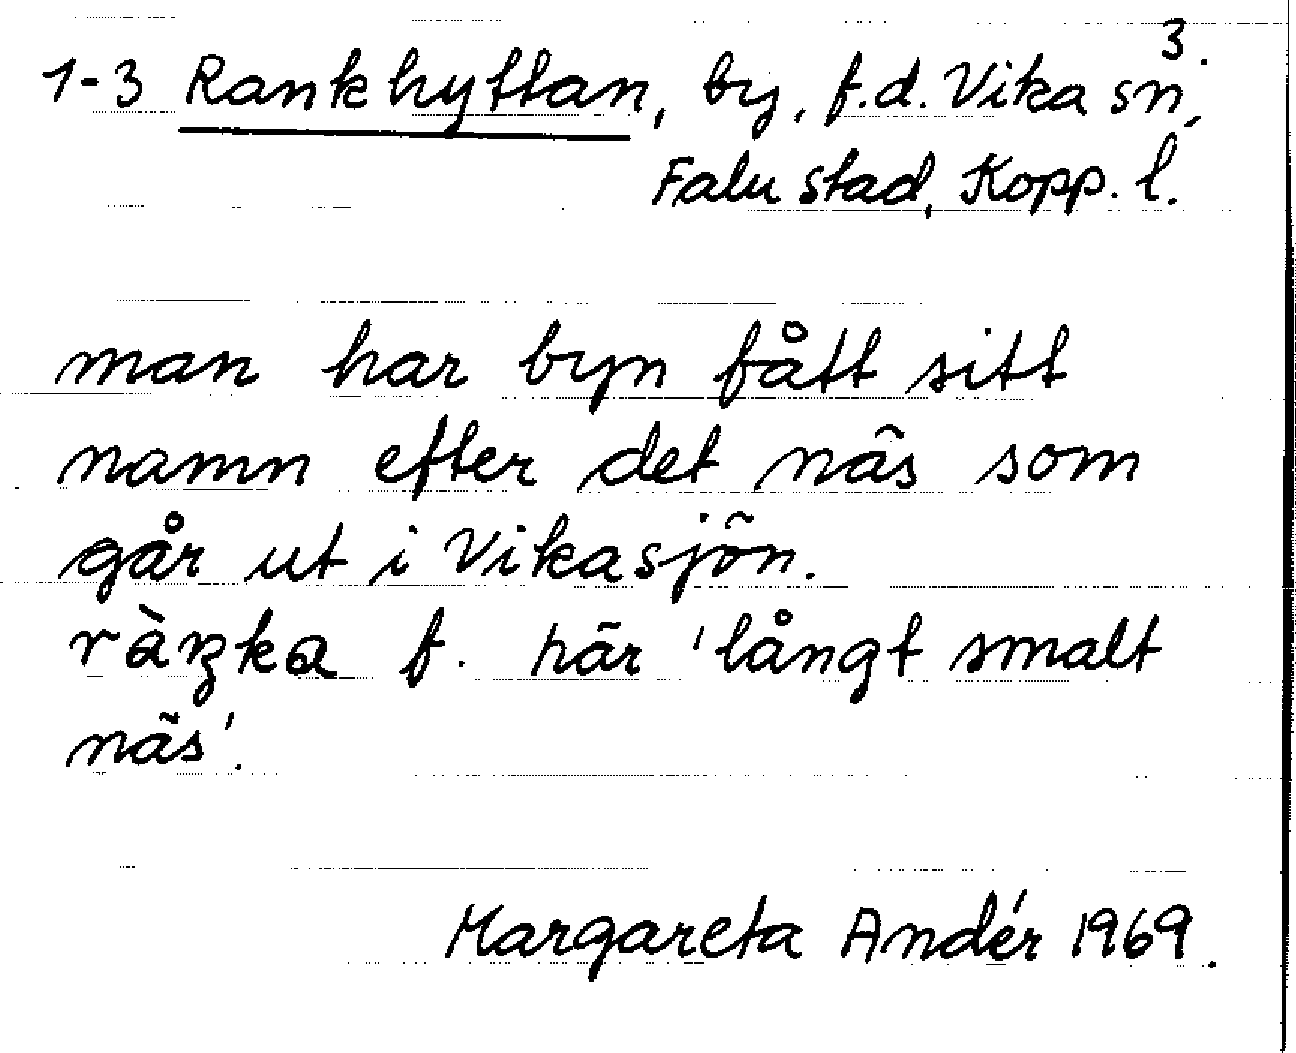 3.
1-3 Rankhyttan, by, f.d. Vika sn,
Falu stad, Kopp. l.
man har byn fått sitt
namn efter det näs som
går ut i Vikasjön.
ràŋka f. här 'långt smalt
näs'.
Margareta Andér 1969.